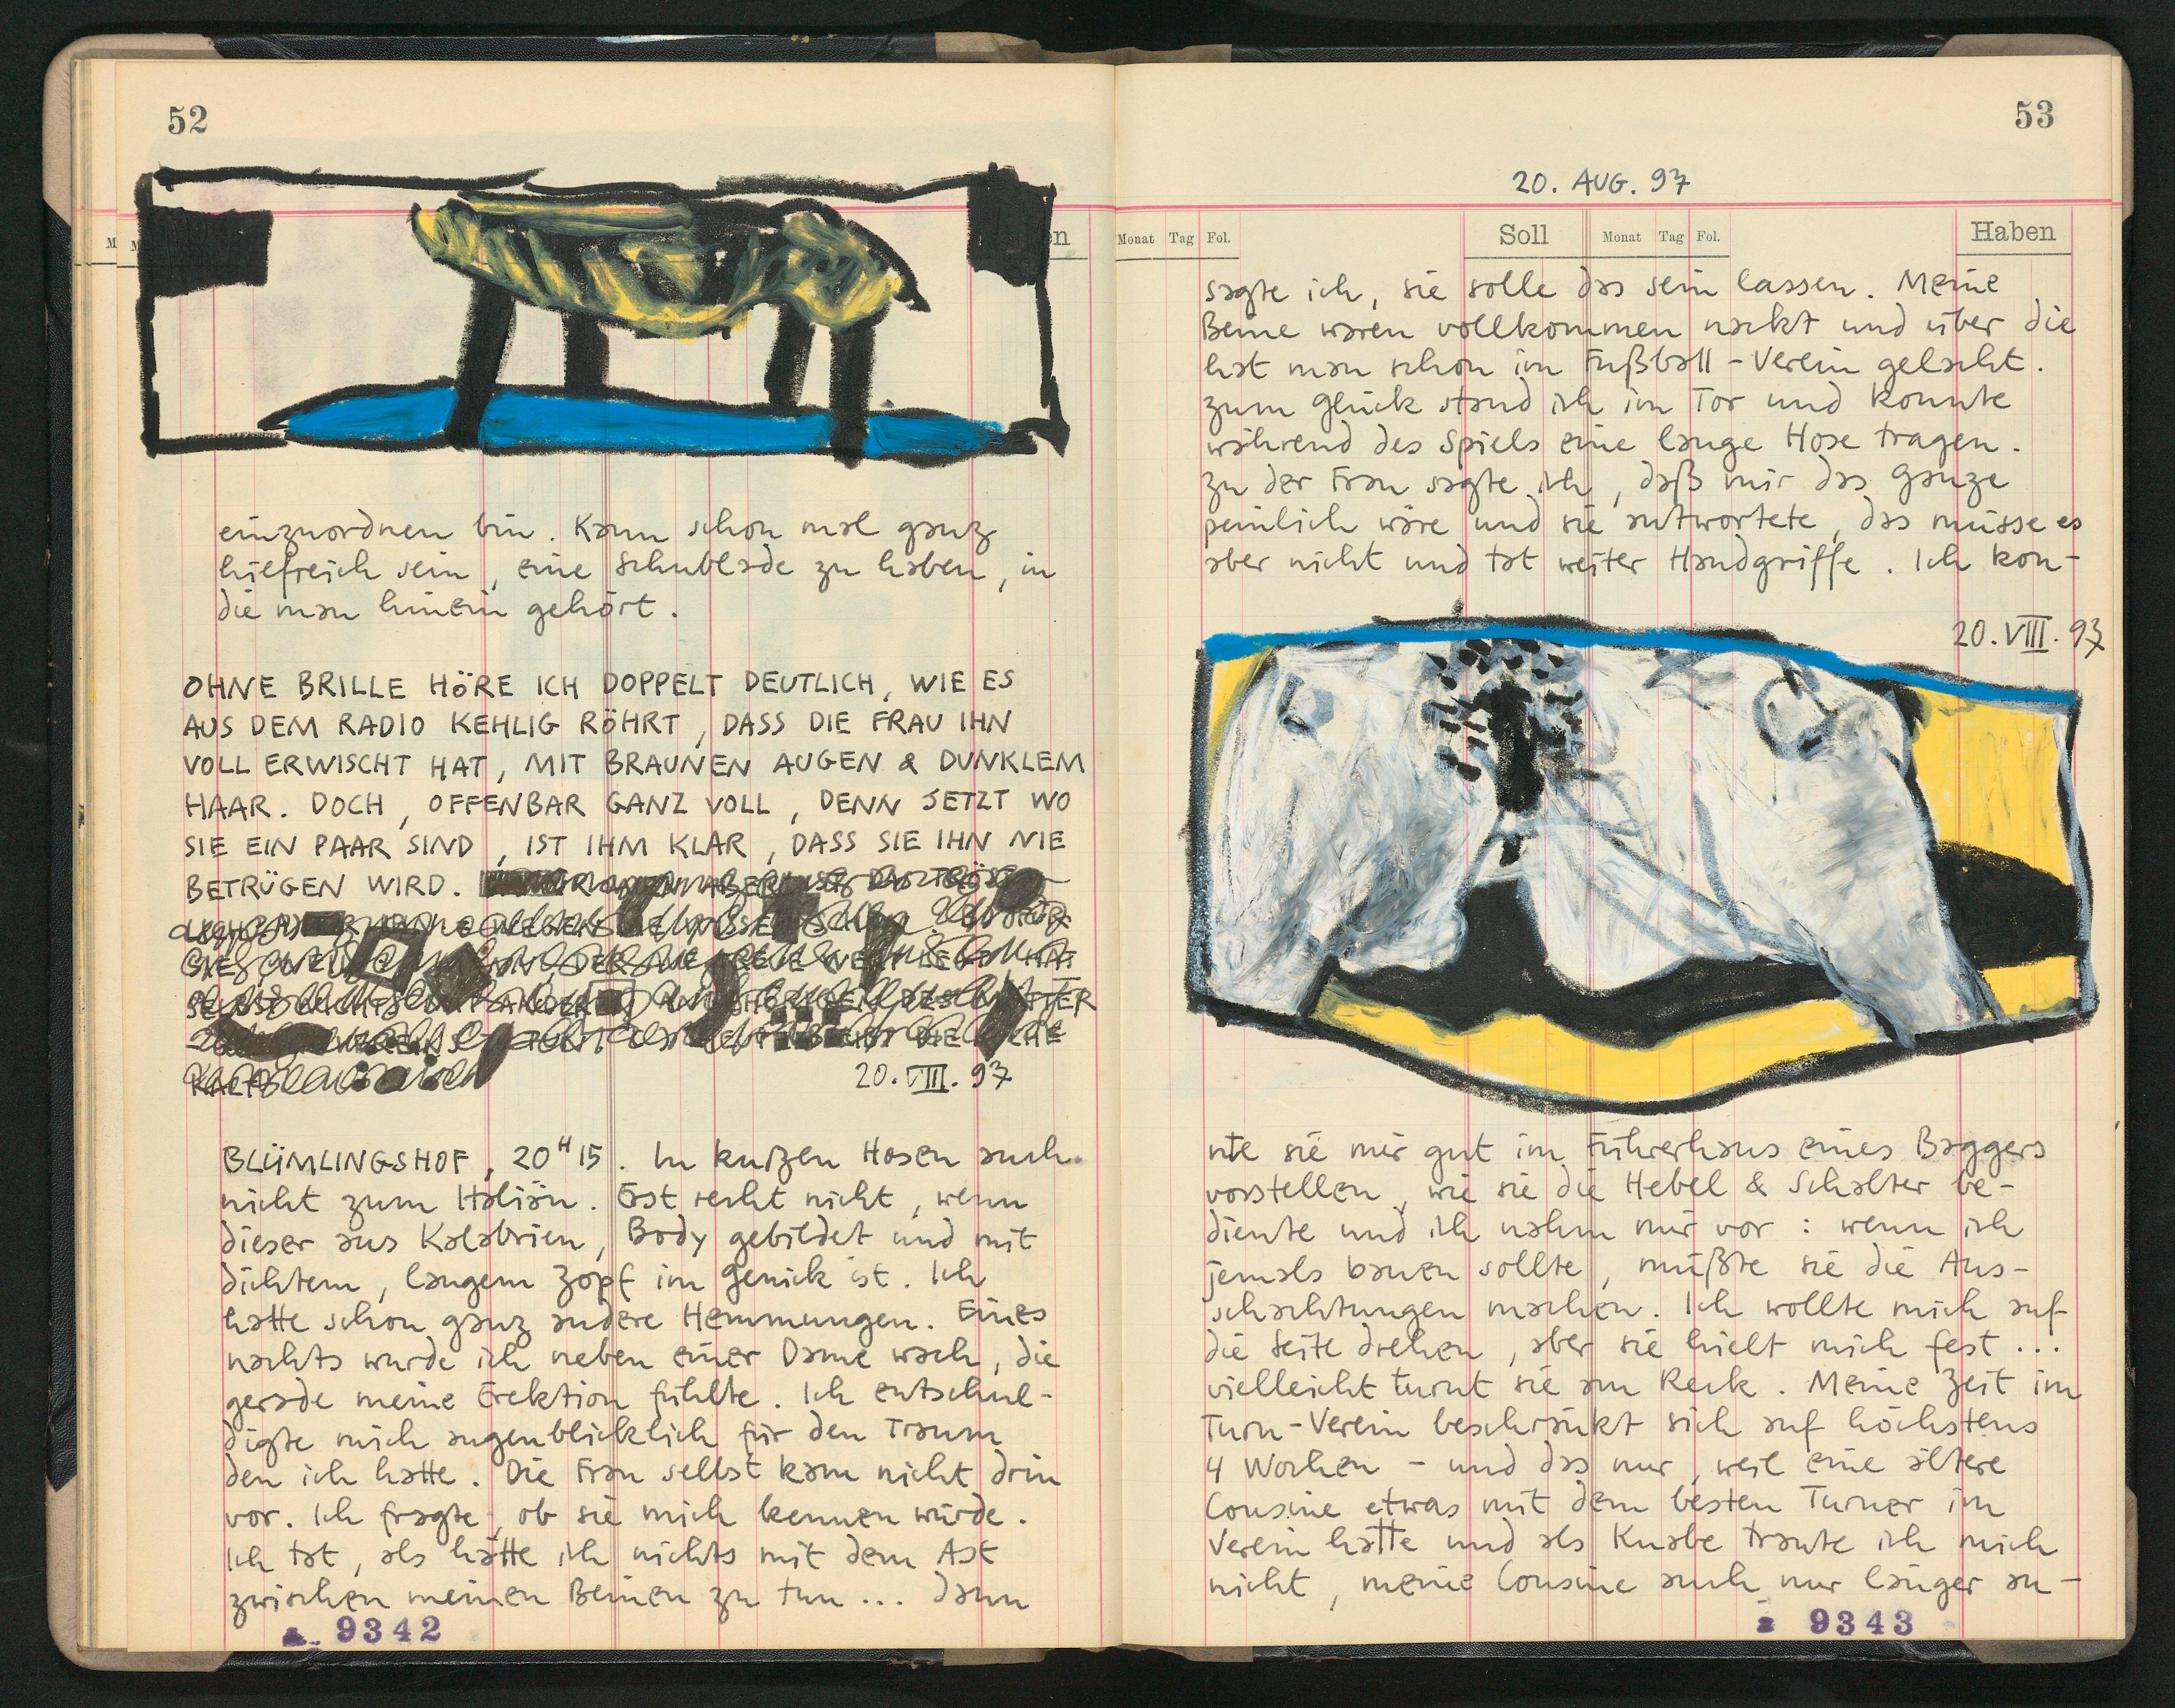 52
einzuordnen bin. Kann schon mal ganz
hilfreich sein, eine Schublade zu haben, in
die man hinein gehört.
OHNE BRILLE HÖRE ICH DOPPELT DEUTLICH, WIE ES
AUS DEM RADIO KEHLIG RÖHRT, DASS DIE FRAU IHN
VOLL ERWISCHT HAT, MIT BRAUNEN AUGEN & DUNKLEM
HAAR. DOCH, OFFENBAR GANZ VOLL, DENN JETZT WO
SIE EIN PAAR SIND, IST IHM KLAR, DASS SIE IHN NIE
BETRÜGEN WIRD.
20.VIII.97
BLÜMLINGSHOF, 20H15. In kurzen Hosen auch
nicht zum Italiän. Erst recht nicht, wenn
dieser aus Kalabrien, Body gebildet und mit
dichtem, langem Zopf im Genick ist. Ich
hatte schon ganz andere Hemmungen. Eines
nachts wurde ich neben einer Dame wach, die
gerade meine Erektion fühlte. Ich entschul-
digte mich augenblicklich für den Traum
den ich hatte. Die Frau selbst kam nicht drin
vor. Ich fragte, ob sie mich kennen würde.
Ich tat, als hätte ich nichts mit dem Ast
zwischen meinen Beinen zu tun... Dann
9342
53
20. AUG. 97
Monat Tag Fol. Soll Monat Tag Fol. Haben
sagte ich, sie solle das sein lassen. Meine
Beine waren vollkommen nackt und über die
hat man schon im Fußball-Verein gelacht.
zum Glück stand ich im Tor und konnte
während des Spiels eine lange Hose tragen.
zu der Frau sagte ich, daß mir das ganze
peinlich wäre und sie antwortete, das müsse es
aber nicht und tat weiter Handgriffe. Ich kon-
20.VIII.97
nte sie mir gut im Führerhaus eines Baggers
vorstellen, wie sie die Hebel & Schalter be-
diente und ich nahm mir vor: wenn ich
jemals bauen sollte, müßte sie die Aus-
schachtungen machen. Ich wollte mich auf
die Seite drehen, aber sie hielt mich fest...
vielleicht turnt sie am Reck. Meine Zeit im
Turn-Verein beschränkt sich auf höchstens
4 Wochen - und das nur, weil eine ältere
Cousine etwas mit dem besten Turner im
Verein hatte und als Knabe traute ich mich
nicht, meine Cousine auch nur länger an-
9343